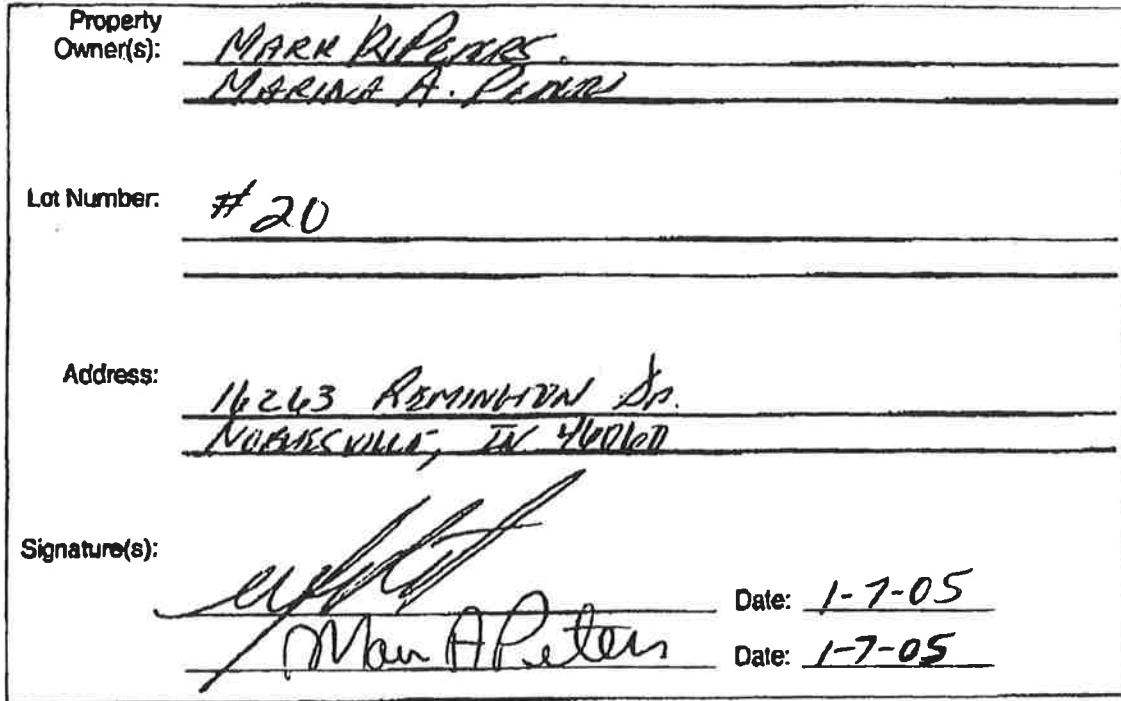 Property
Owner(s): MARK R. PETERS.
MARINA A. PETERS
Lot Number: # 20
Address: 16263 REMINGTON DR.
NOBLESVILLE, IN 46060
Signature(s):
Date: 1-7-05
A Peters Date: 1-7-05